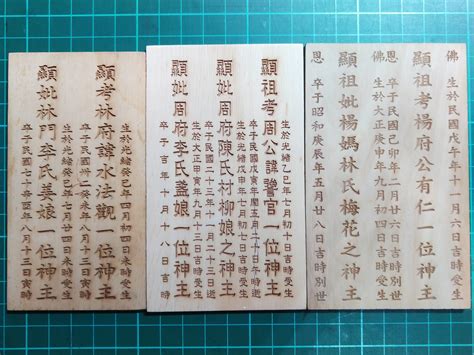 佛 生於民國戊午年十一月六日吉時受生
顯祖考楊府公有仁一位神主
卒于民國卯年二月廿六日吉時別世
佛 生於大正庚申年九月初四日吉時受生
顯祖妣楊媽林氏梅花之神主
恩 卒于昭和庚辰年五月廿八日吉時別世
生於光緒乙巳年七月初十日吉時受生
顯祖考周公諱譽官一位神主
卒于民國年閏五月三十日午時逝
生於光緒戊申年七月初八日吉時受生
顯妣周府陳氏村柳娘之神主
卒于民國二十年三月二日吉時
生於大正甲寅年九月十三日吉時受生
顯妣周府李氏盖娘一位神主
卒于吉年十月十八日吉時
生於光緒癸巳年四月初四日未時受生
顯考林府諱水法觀一位神主
卒于民國卅二癸未年八月十三日時
生於光緒癸年七月初二日吉時受生
顯妣林門李氏姜娘一位神主
卒于民國七十年八月十三日寅時